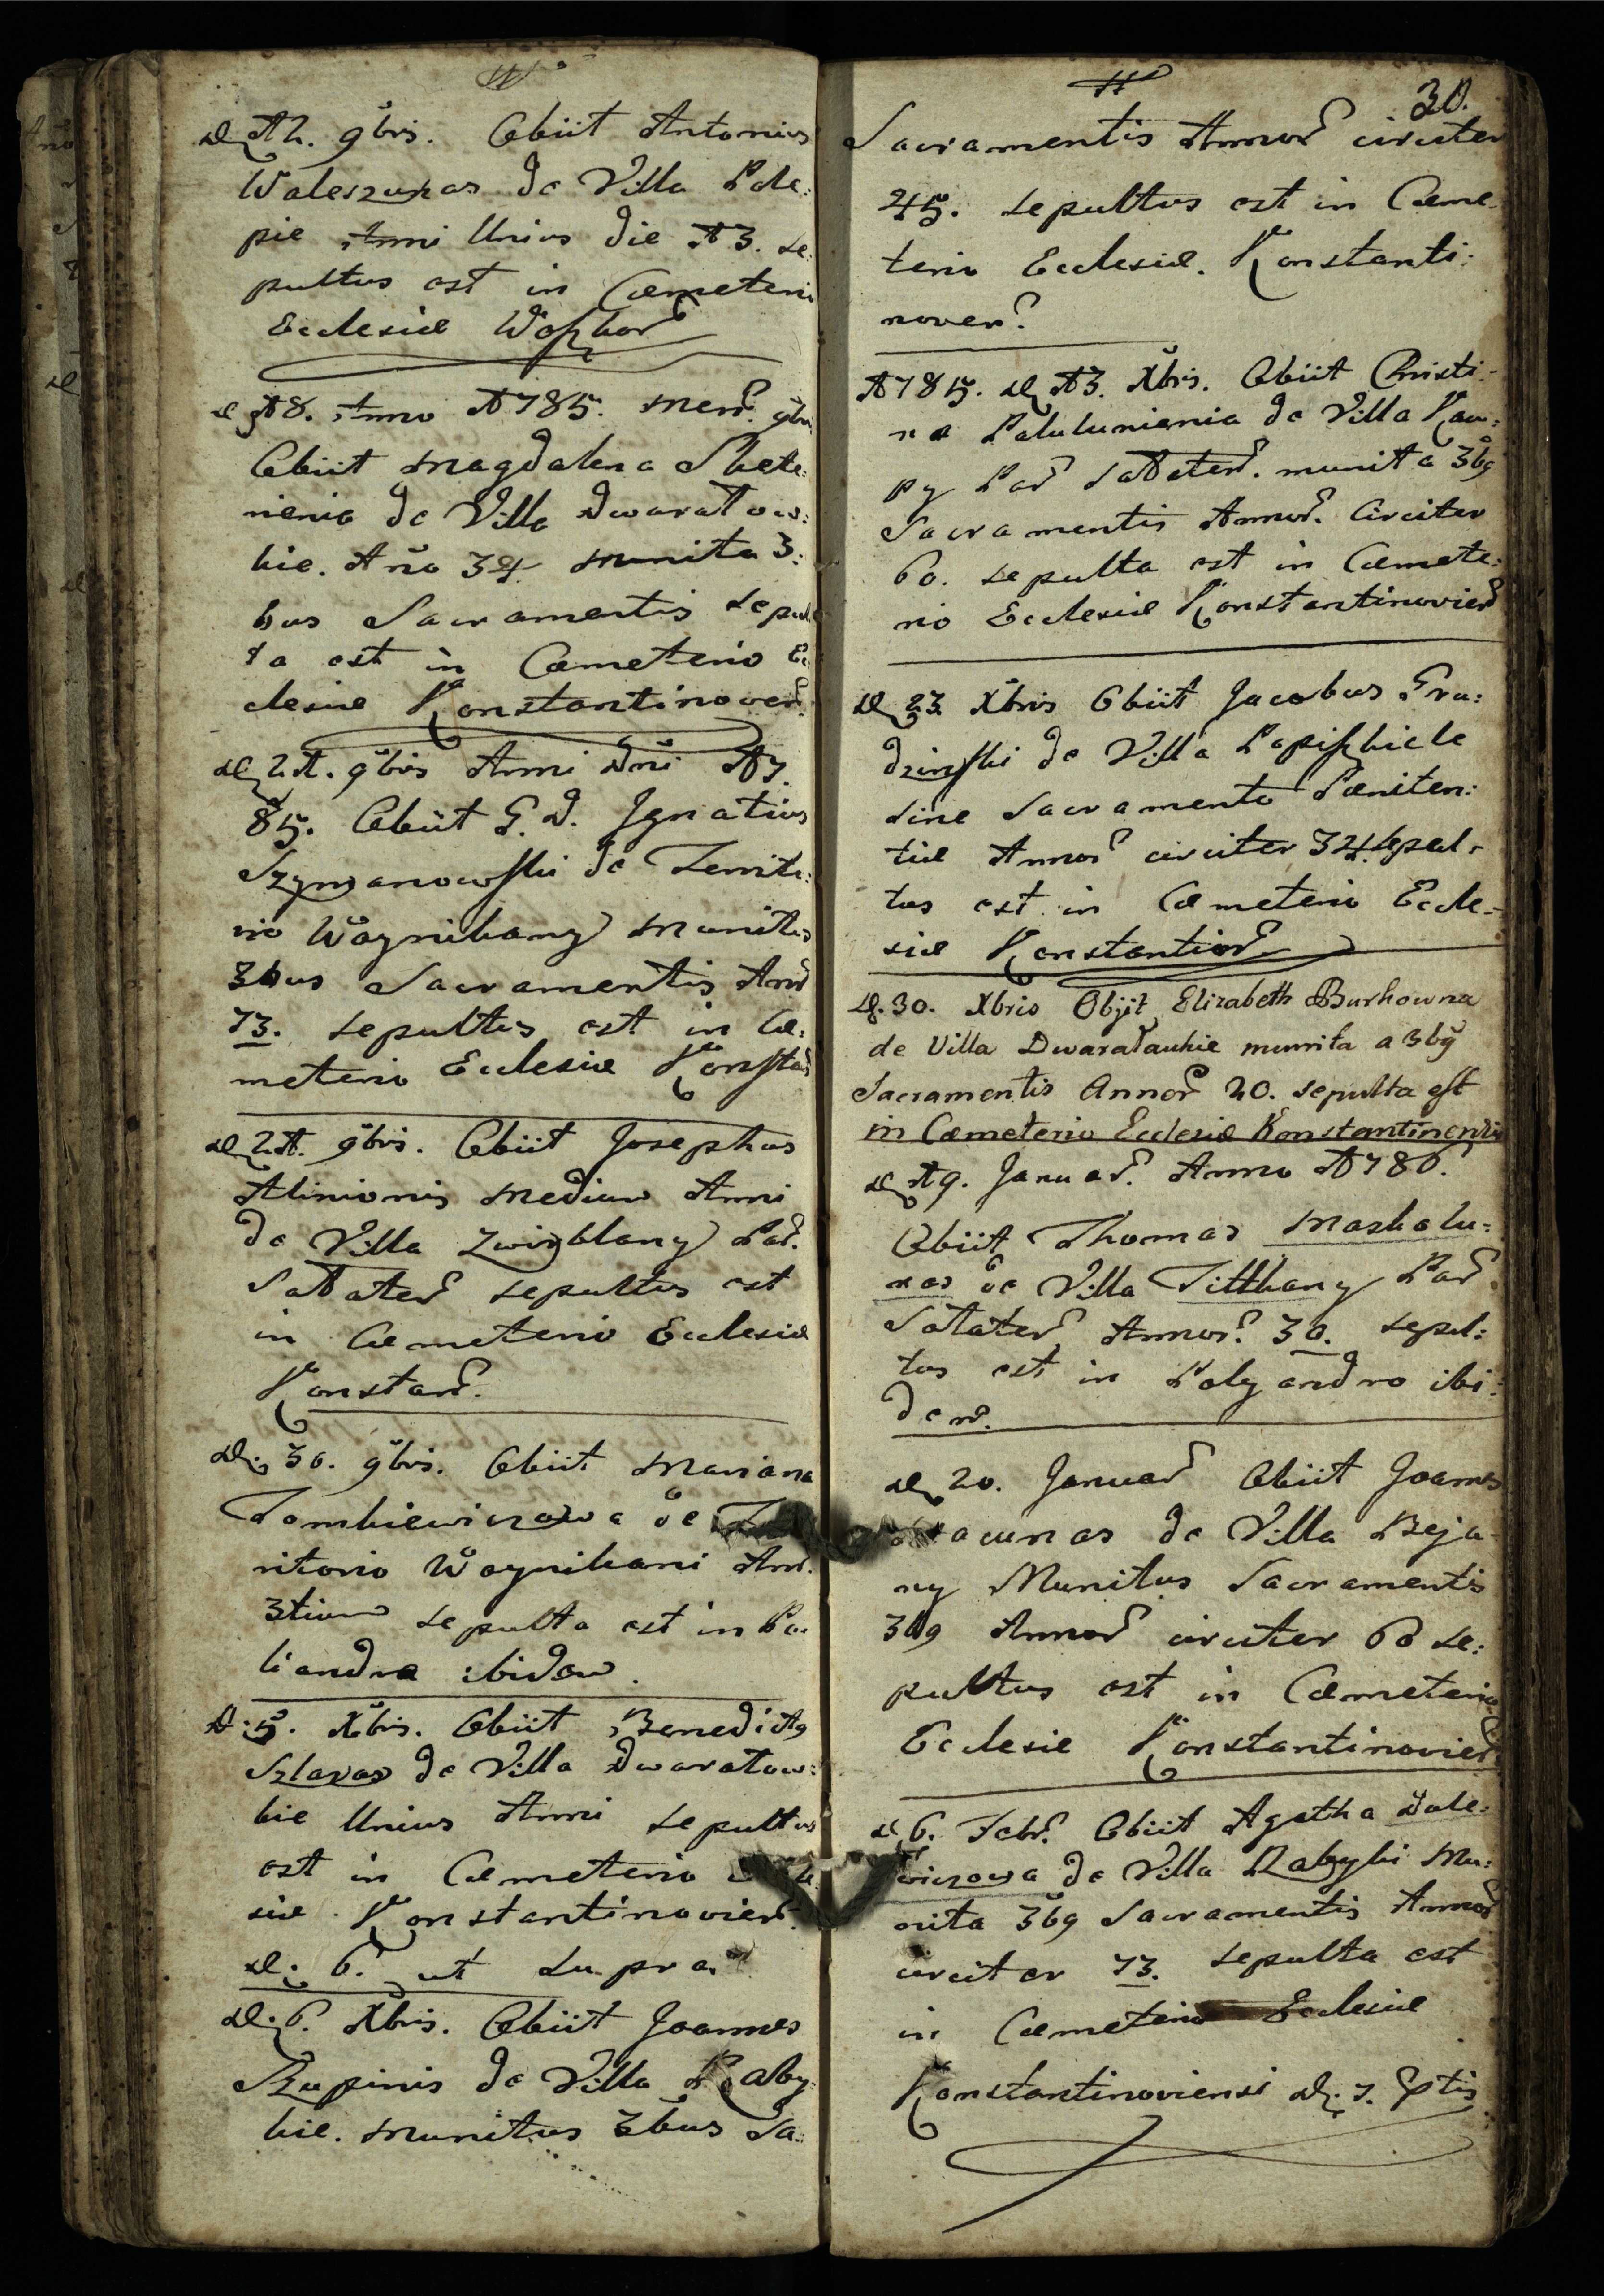 D 12. 9bris. Obiit Antonius
Waleszunas de Villa Pole:
pie Anni Unius die 13. Se:
pultus est in Cœmeterio
Ecclesiæ
D 18. Anno 1785. Mens. 9bris
Obiit Magdalena Skete:
nienia de Villa Dwaratow:
kie. Año 34 Munita 3:
bus Sacramentis Sepul
ta est in Cœmeterio Ec
clesiæ Konstantinovens.
D 21. 9bris Anni Dñi 17
85. Obiit G. D. Ignatius
Szymanowski de Territo:
rio Woynikany Munitus
3bus Sacramentis Ann
73. Sepultus est in Cœ:
meterio Ecclesiæ Konstan
D 21. 9bris. Obiit Josephus
Alinionis Medium Anni
de Villa Zwirblany Par.
Satateñ Sepultus est
in Cœmeterio Ecclesiæ
Konstan.
D. 30. 9bris. Obiit Mariana
Tomkiewiczowa de Ter
ritorio Woynikani Ann.
3tium Sepulta est in Po:
liandra ibidem.
D. 5. Xbris. Obiit Benedictg
Szlazas de Villa Dwaratow:
kie Unius Anni Sepultus
est in Cœmeterio Eccle
siæ Konstantinoviens.
D. 6. ut Supra.
D. 6. Xbris. Obiit Joannes
Rupinis de Villa Raby:
kie. Munitus 3bus Sa:
30.
Sacramentis Annor circiter
45. Sepultus est in Cœme
terio Ecclesiæ. Konstanti:
noven.
1785. D 13. Xbris. Obiit Christi:
na Palulunienia de Villa Kau:
py Par Satateñ. munita 3bg
Sacramentis Annor. Circiter
60. Sepulta est in Cœmete:
rio Ecclesiæ Konstantinovien
D 23 Xbris Obiit Jacobus Gru:
dzinski de Villa Popiszkiele
Sine Sacramento Pœniten:
tiæ Annor circiter 34 Sepul:
tus est in Cœmeterio Eccle:
siæ
D. 30. Xbris Obijt Elizabeth Burkowna
de Villa Dwarałaukie munita a 3bg
Sacramentis Annor 20. sepulta est
in Cæmeterio Ecclesiæ Konstantinensis
D 19. Januar. Anno 1786.
Obiit Thomas Maskolu:
nas de Villa Titkany Par
Satateñ Annor. 30. Sepul:
tus est in Polyandro ibi:
dem.
D 20. Januar Obiit Joannes
de Villa Beja
ny Munitus Sacramentis
3bg Annor circiter 60 Se:
pultus est in Cœmeterio
Eclesie Konstantinovien
D 6. Febr. Obiit Agatha Dule:
wiczowa de Villa Rabyki Mu:
nita 3bg Sacramentis Annor
circiter 73. Sepulta est
in Cœmeterio Ecclesiæ
Konstantinoviensi D. 7.